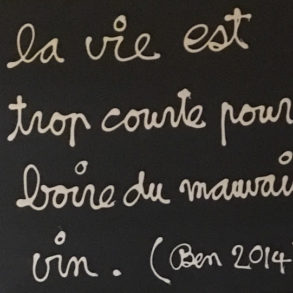 la vie est
trop courte pour
boire du mauvai
vin. (Ben 2014)